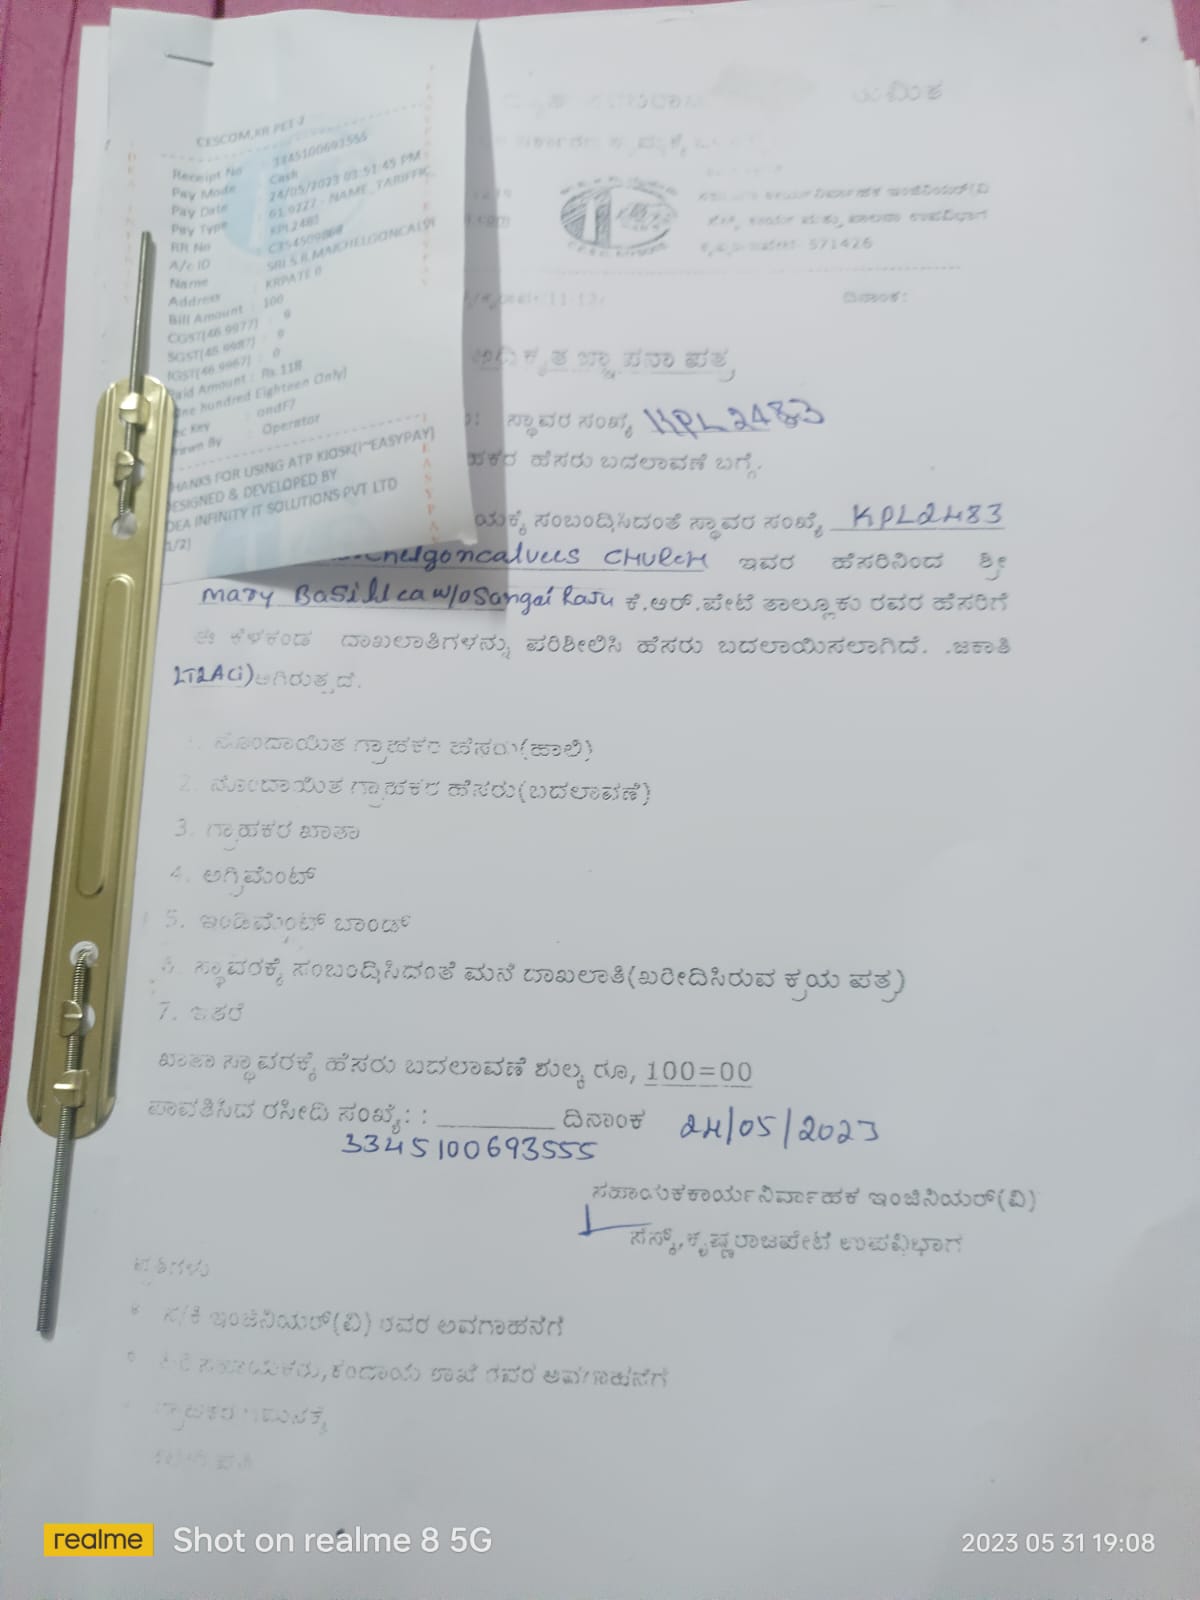 CESCOM,KR PET-2
Receipt No : 3345100693555
Pay Mode : Cash
Pay Date : 24/05/2023 03:51:45 PM
Pay Type : 61.9227 - NAME_TARIFFIC
RR No : KPL2483
A/c ID
Name : SRI.S.R.MAICHELGONCALVE
Address : KRPATE 0
Bill Amount : 100
CGST(46.9977) : 9
SGST(46.9987) : 9
IGST(46.9967) : 0
Paid Amount : Rs.118
One hundred Eighteen Only)
Key : ondF7
Drawn By : Operator
THANKS FOR USING ATP KIOSK(I~EASYPAY)
DESIGNED & DEVELOPED BY
IDEA INFINITY IT SOLUTIONS PVT LTD
1/2)
ಇಂಜಿನಿಯರ್(ವಿ
ಮತ್ತು ಪಾಲನಾ ಉಪವಿಭಾಗ
571426
ದಿನಾಂಕ:
ಅಧಿಕೃತ ಜ್ಞಾಪನಾ ಪತ್ರ
ಸ್ಥಾವರ ಸಂಖ್ಯೆ KPL2483
ಹೆಸರು ಬದಲಾವಣೆ ಬಗ್ಗೆ.
ಸಂಬಂಧಿಸಿದಂತೆ ಸ್ಥಾವರ ಸಂಖ್ಯೆ KPL2483
chelgoncalvees CHURCH ಇವರ ಹೆಸರಿನಿಂದ ಶ್ರೀ
mary Basillica w/o Sangai Raju ಕೆ.ಆರ್.ಪೇಟೆ ತಾಲ್ಲೂಕು ರವರ ಹೆಸರಿಗೆ
ಈ ಕೆಳಕಂಡ ದಾಖಲಾತಿಗಳನ್ನು ಪರಿಶೀಲಿಸಿ ಹೆಸರು ಬದಲಾಯಿಸಲಾಗಿದೆ. .ಜಕಾತಿ
LT2A(i) ಆಗಿರುತ್ತದೆ.
1. ನೋಂದಾಯಿತ ಗ್ರಾಹಕರ ಹೆಸರು(ಹಾಲಿ)
2. ನೋಂದಾಯಿತ ಗ್ರಾಹಕರ ಹೆಸರು(ಬದಲಾವಣೆ)
3. ಗ್ರಾಹಕರ ಖಾತಾ
4. ಅಗ್ರಿಮೆಂಟ್
5. ಇಂಡಿಮೆಂಟ್ ಬಾಂಡ್
6. ಸ್ಥಾವರಕ್ಕೆ ಸಂಬಂಧಿಸಿದಂತೆ ಮನೆ ದಾಖಲಾತಿ(ಖರೀದಿಸಿರುವ ಕ್ರಯ ಪತ್ರ)
7. ಇತರೆ
ಖಾತಾ ಸ್ಥಾವರಕ್ಕೆ ಹೆಸರು ಬದಲಾವಣೆ ಶುಲ್ಕ ರೂ, 100=00
ಪಾವತಿಸಿದ ರಸೀದಿ ಸಂಖ್ಯೆ: : ________ ದಿನಾಂಕ 24/05/2023
3345100693555
ಸಹಾಯಕಕಾರ್ಯನಿರ್ವಾಹಕ ಇಂಜಿನಿಯರ್(ವಿ)
ಸೆಸ್ಕ್,ಕೃಷ್ಣರಾಜಪೇಟೆ ಉಪವಿಭಾಗ
ಪ್ರತಿಗಳು
ಸ/ಕಿ ಇಂಜಿನಿಯರ್(ವಿ) ರವರ ಅವಗಾಹನೆಗೆ
ಹಿರಿ ಸಹಾಯಕರು,ಕಂದಾಯ ಶಾಖೆ ರವರ ಅವಗಾಹನೆಗೆ
ಗ್ರಾಹಕರ ಗಮನಕ್ಕೆ
realme Shot on realme 8 5G
2023 05 31 19:08